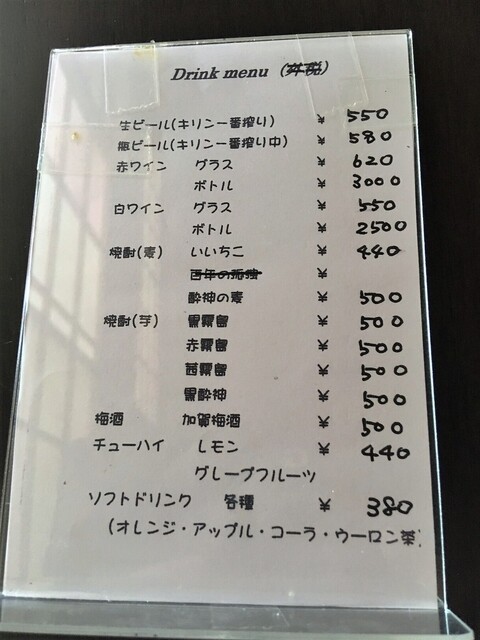 Drink menu (弊税)
生ビール(キリン一番搾り) ¥ 550
瓶ビール(キリン一番搾り中) ¥ 580
赤ワイン グラス ¥ 620
ボトル ¥ 3000
白ワイン グラス ¥ 550
ボトル ¥ 2500
焼酎(麦) いいちこ ¥ 440
百年の孤独 ¥
酔神の麦 ¥ 500
焼酎(芋) 黒霧島 ¥ 500
赤霧島 ¥ 500
茜霧島 ¥ 500
黒酔神 ¥ 500
梅酒 加賀梅酒 ¥ 500
チューハイ レモン ¥ 440
グレープフルーツ
ソフトドリンク 各種 ¥ 380
(オレンジ・アップル・コーラ・ウーロン茶)